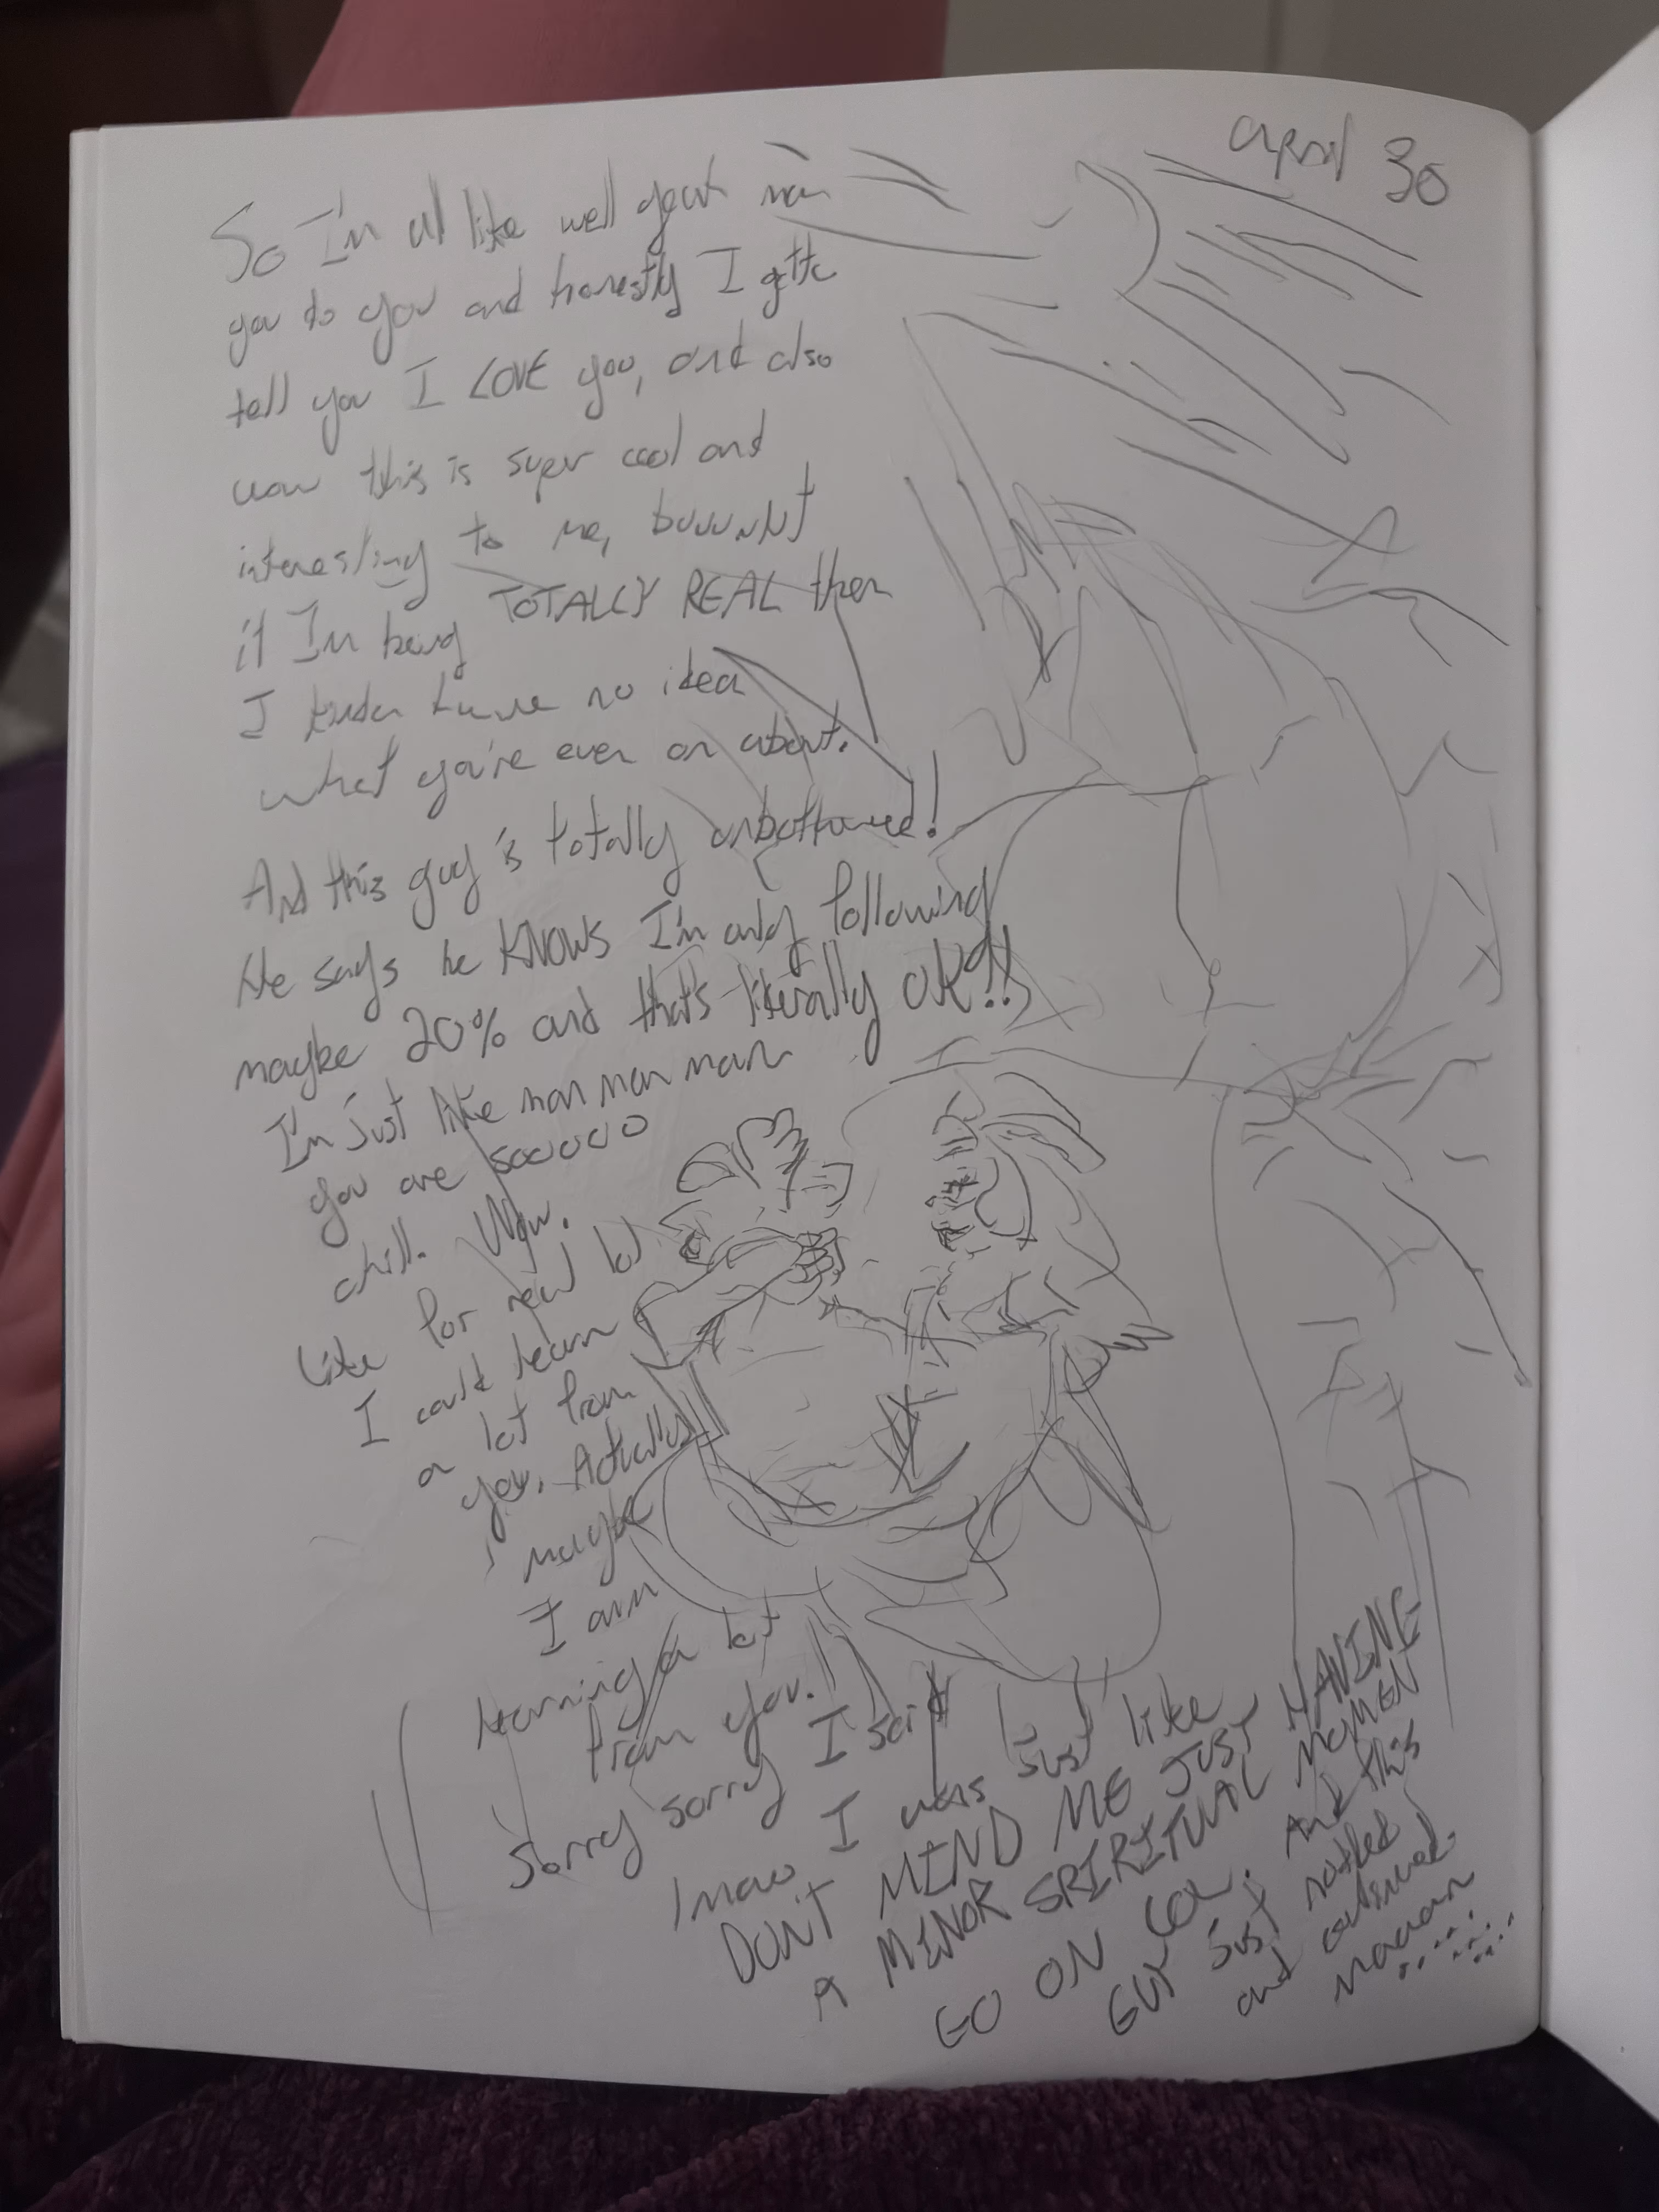 april 30
So I'm all like well great man
you to you and honestly I gotta
tell you I LOVE you, and also
wow this is super cool and
interesting to me, buuuuut
if I'm being TOTALLY REAL then
I kinda have no idea
what you're even on about.
And this guy's totally unbothered!
He says he KNOWS I'm only following
maybe 20% and that's literally OK!!
I'm just like man man man
you are soooooo
chill. Wow.
Like for real
I could learn
a lot from
you. Actually
maybe
I am
learning a lot
from you.
Sorry sorry I said
I was just like
DON'T MIND ME JUST HAVING
A MINOR SPIRITUAL MOMENT
GO ON And this
GUY just nodded
and continued.
maaaan